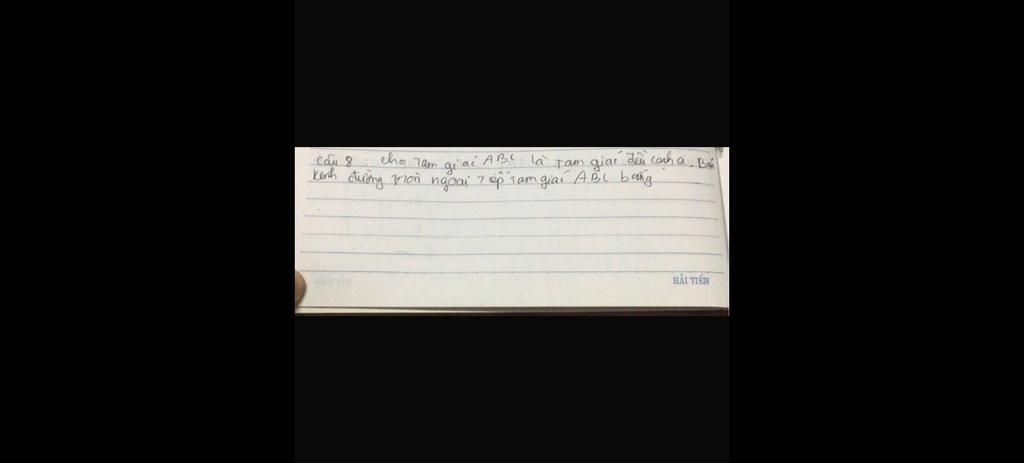 Câu 8 : cho Tam giác ABC là Tam giác đều cạnh a. Bán
kính đường tròn ngoại tiếp tam giác ABC bằng
HẢI TIẾN